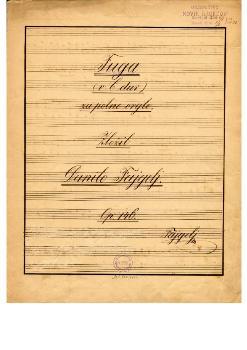 Fuga
(v C duru)
za polne orgle
Zložil
Danilo Fajgelj
Op. 146.
Fajgelj